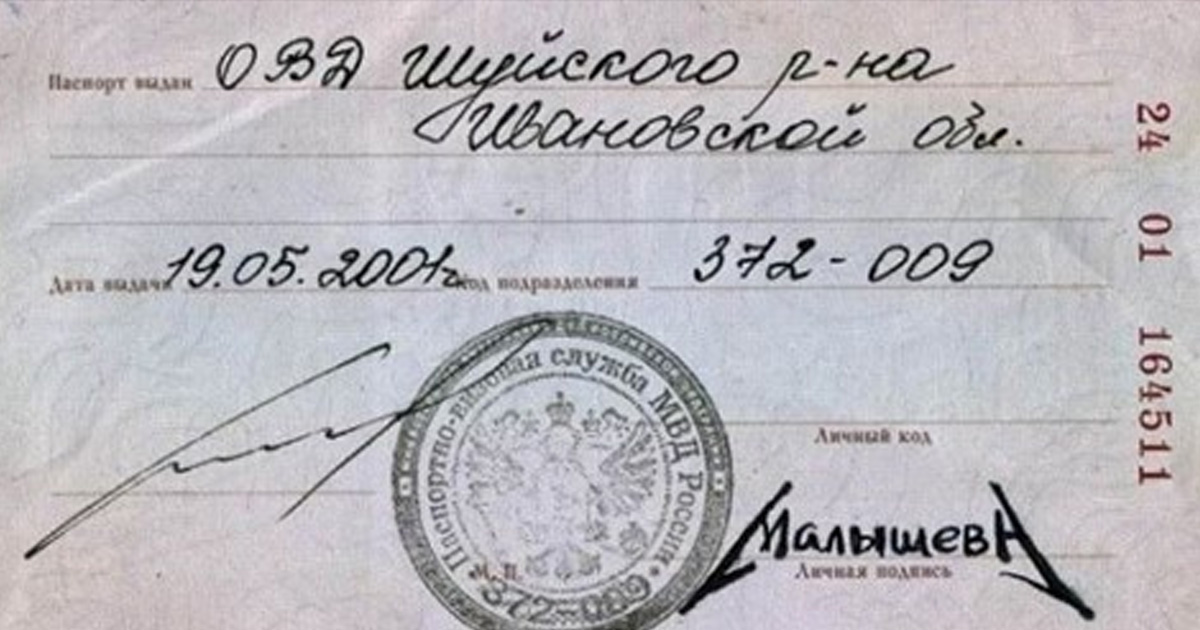 Паспорт выдан ОВД Шуйского р-на
Ивановской обл.
Дата выдачи 19.05.2001г. Код подразделения 372-009
Паспортно-визовая служба МВД России
Личный код
Малышев
Личная подпись
М. П.
372-009
24 01 164511